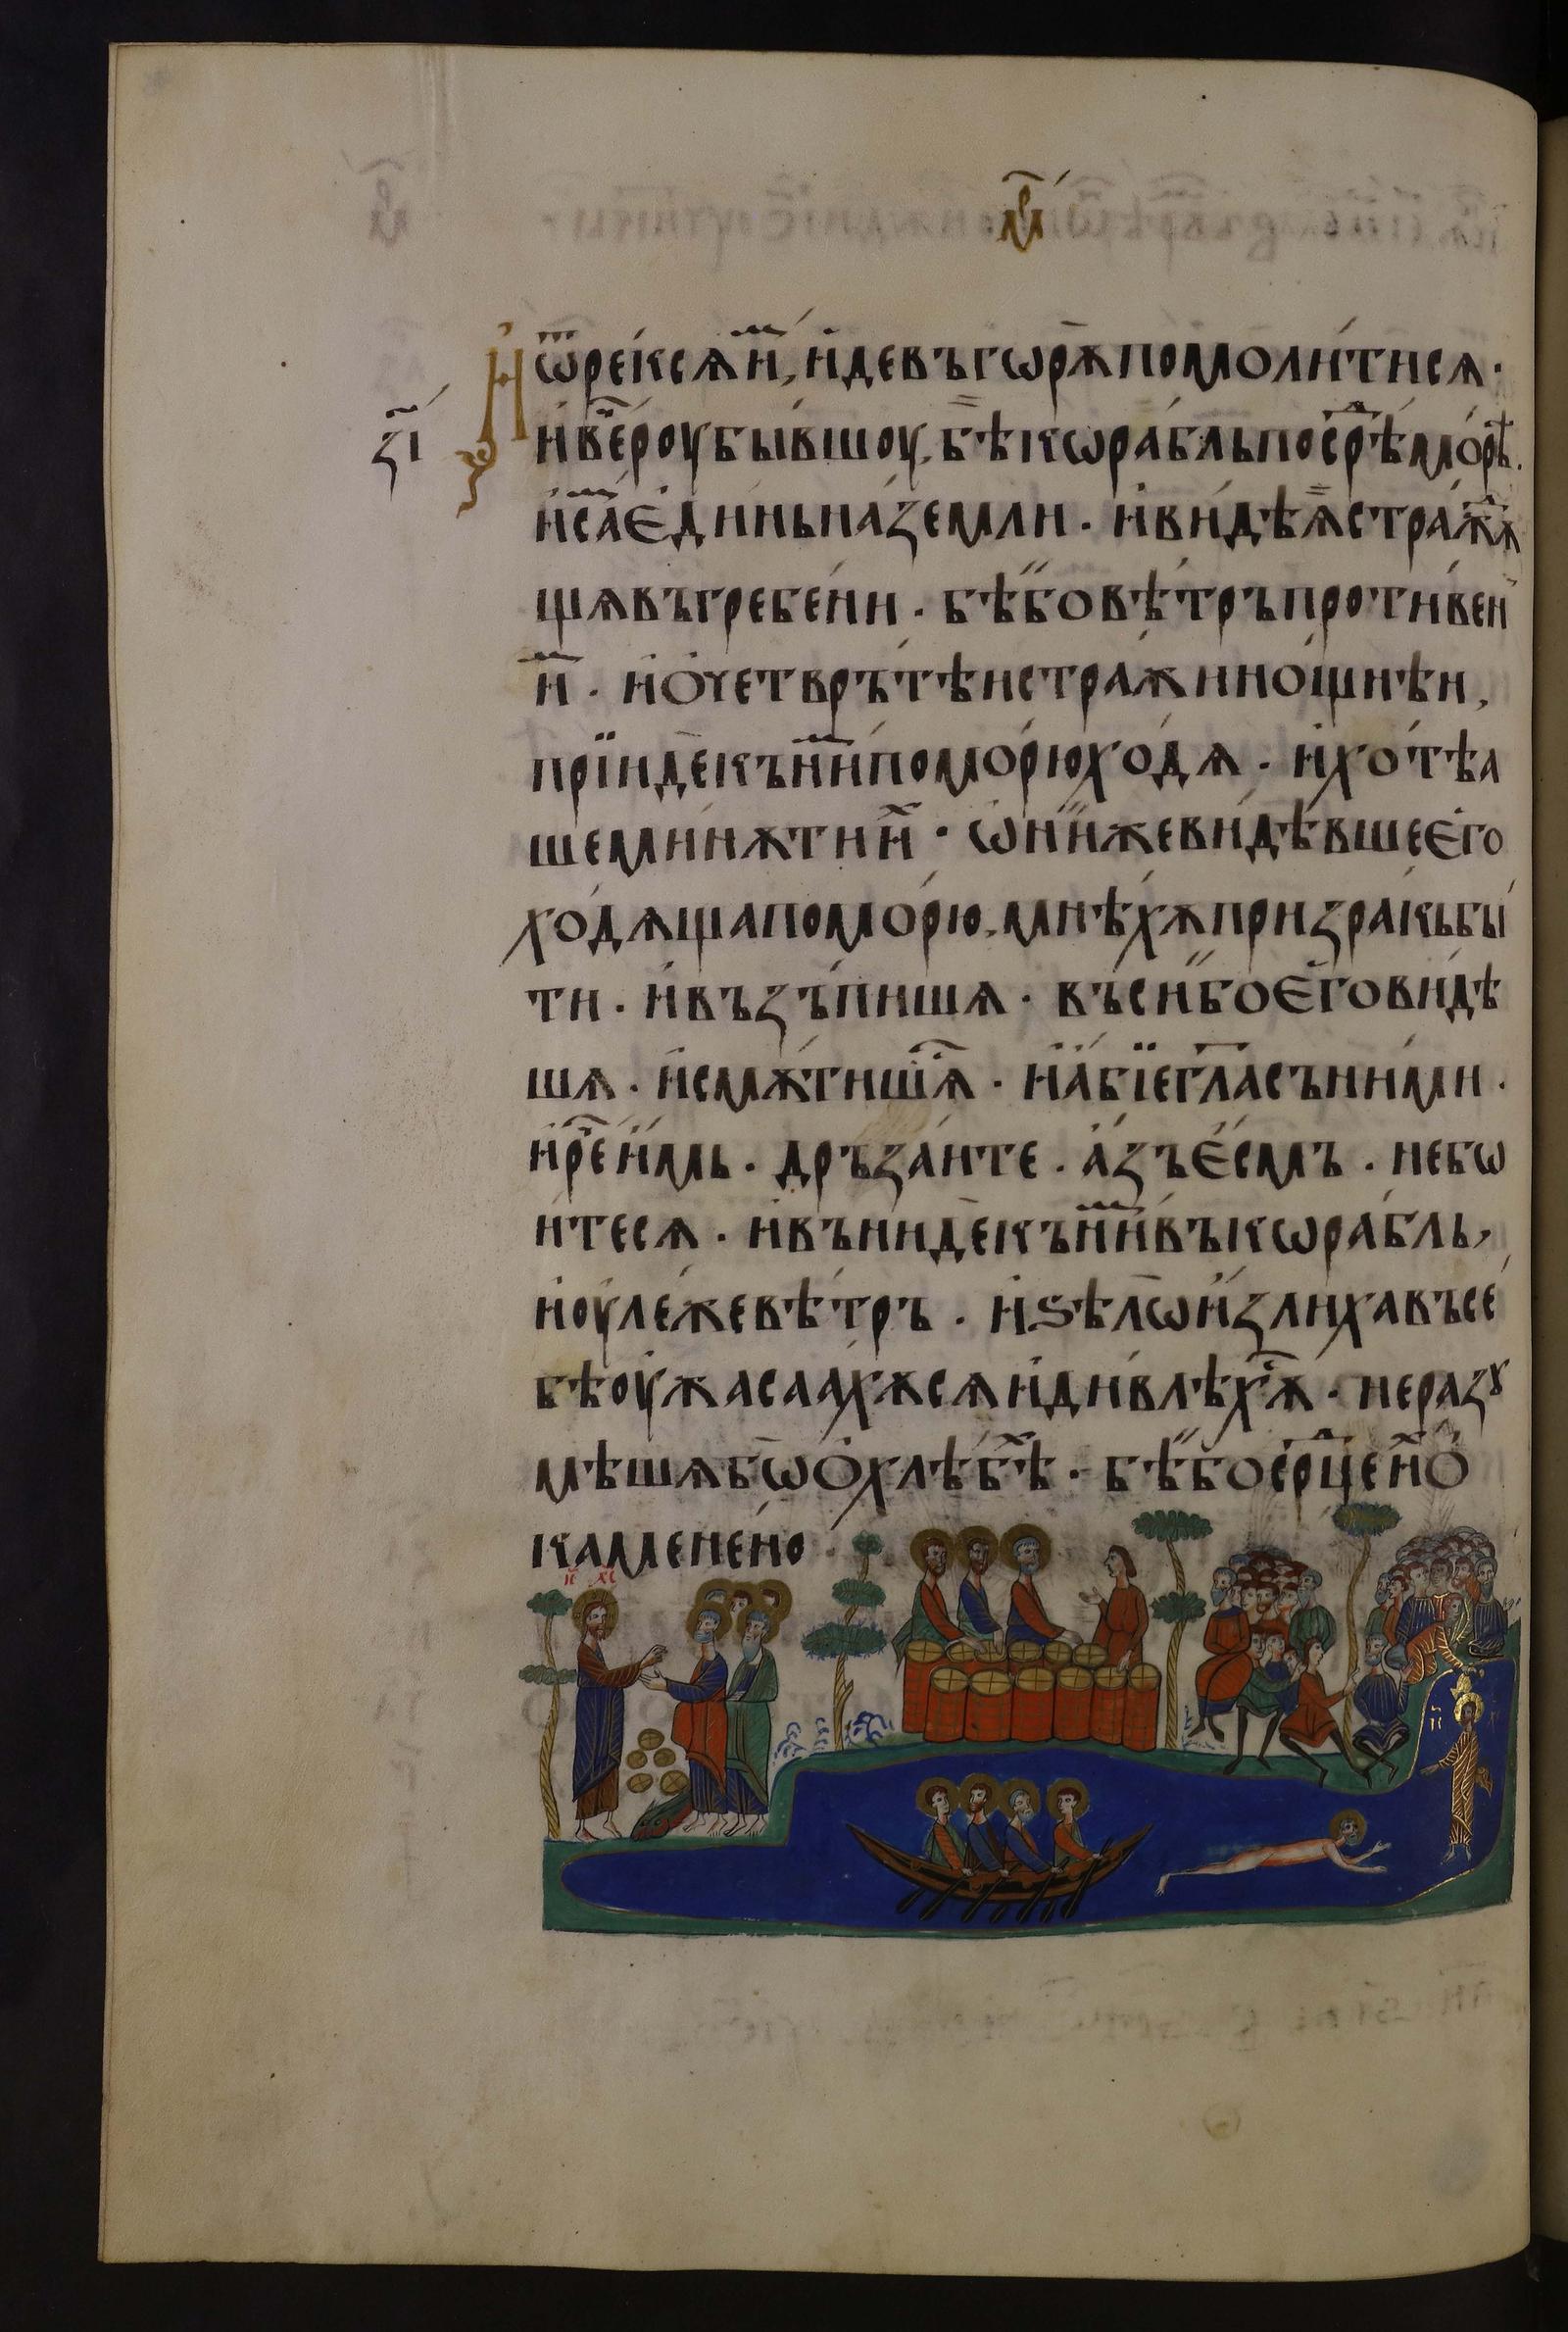 м҃р
И ѿре́ксѧ и҆м, и҆́де въ гѡрѫ̀ помоли́тисѧ ·
з҃і
и҆ ве́ⷱ҇роу бы́вшоу, бѣ̀ кѡра́бль посрѣ́ⷣ мо́рѣ ·
и҆ са́м є҆ди́нь на́ земли · и҆ ви́дѣ ѧ҆̀ стра́жⷣѫ
щѧ въ гребе́ни · бѣ́ бо вѣ́тръ проти́вен
и҆м · и҆ ѻ҆ четврь́тѣи стра́жи но́щнѣи,
прїи́де къ ни́м по мо́рю ходѧ · и҆ хо́тѣа
ше минѫ́ти и҆̀х · ѡ҆ни́ же ви́дѣвше є҆го
ходѧ́ща по мо́рю, мнѣ́хѫ при́зракь бы́
ти · и҆ възъпи́шѧ · въ́си бо є҆го ви́дѣ
шѧ · и҆ смѫти́шѧсѧ · и҆ а҆́бїе гл҃а съ ни́ми ·
и҆ реⷱ҇ и҆̀мь · дръза́ите · а҆́зъ є҆́смъ · не бѡ
и́тесѧ · и҆ въни́де къ ни́м въ кѡра́бль,
и҆ оу҆ле́же вѣ́тръ · и҆ ѕѣлѡ̀ и҆зли́ха въ се
бѣ оу҆жаса́ахѫсѧ и҆ диви́ѣхѫсѧ · не разꙋ
мѣ́шѧ бѡ ѻ҆ хлѣ́бѣх · бѣ́ бо срⷣце и҆́х ѻ҆
камене́но ·
і҃с х҃с